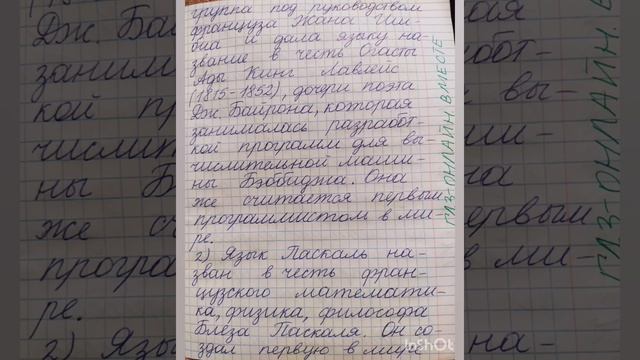 группа под руководством
француза Жана Иш-
биа и дала языку на-
звание в честь Огасты
Ады Кинг Лавлейс
(1815-1852), дочери поэта
Дж. Байрона, которая
занималась разработ-
кой программ для вы-
числительной маши-
ны Бэббиджа. Она
же считается первым
программистом в ми-
ре.
2) Язык Паскаль на-
зван в честь фран-
цузского математи-
ка, физика, философа
Блеза Паскаля. Он со-
здал первую в мире
ГДЗ-ОНЛАЙН ВМЕСТЕ
InShOt